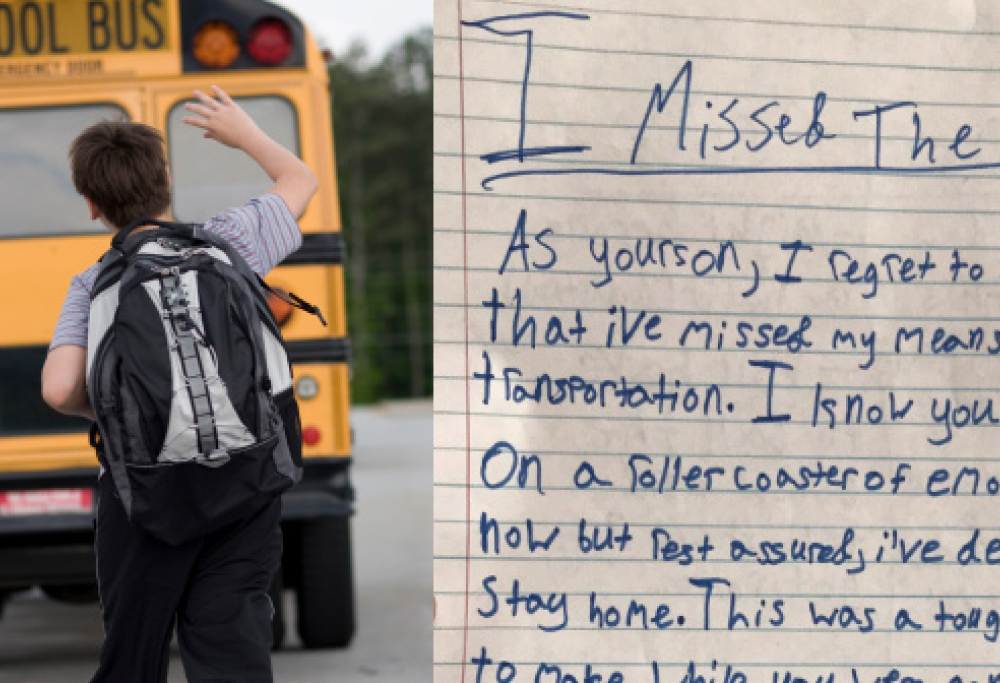 OOL BUS
ERGENCY DOOR
I Missed The
As yourson, I regret to
that i've missed my means
transportation. I know you
On a roller coaster of emo
now but rest assured, i've de
Stay home. This was a toug
to make. While you